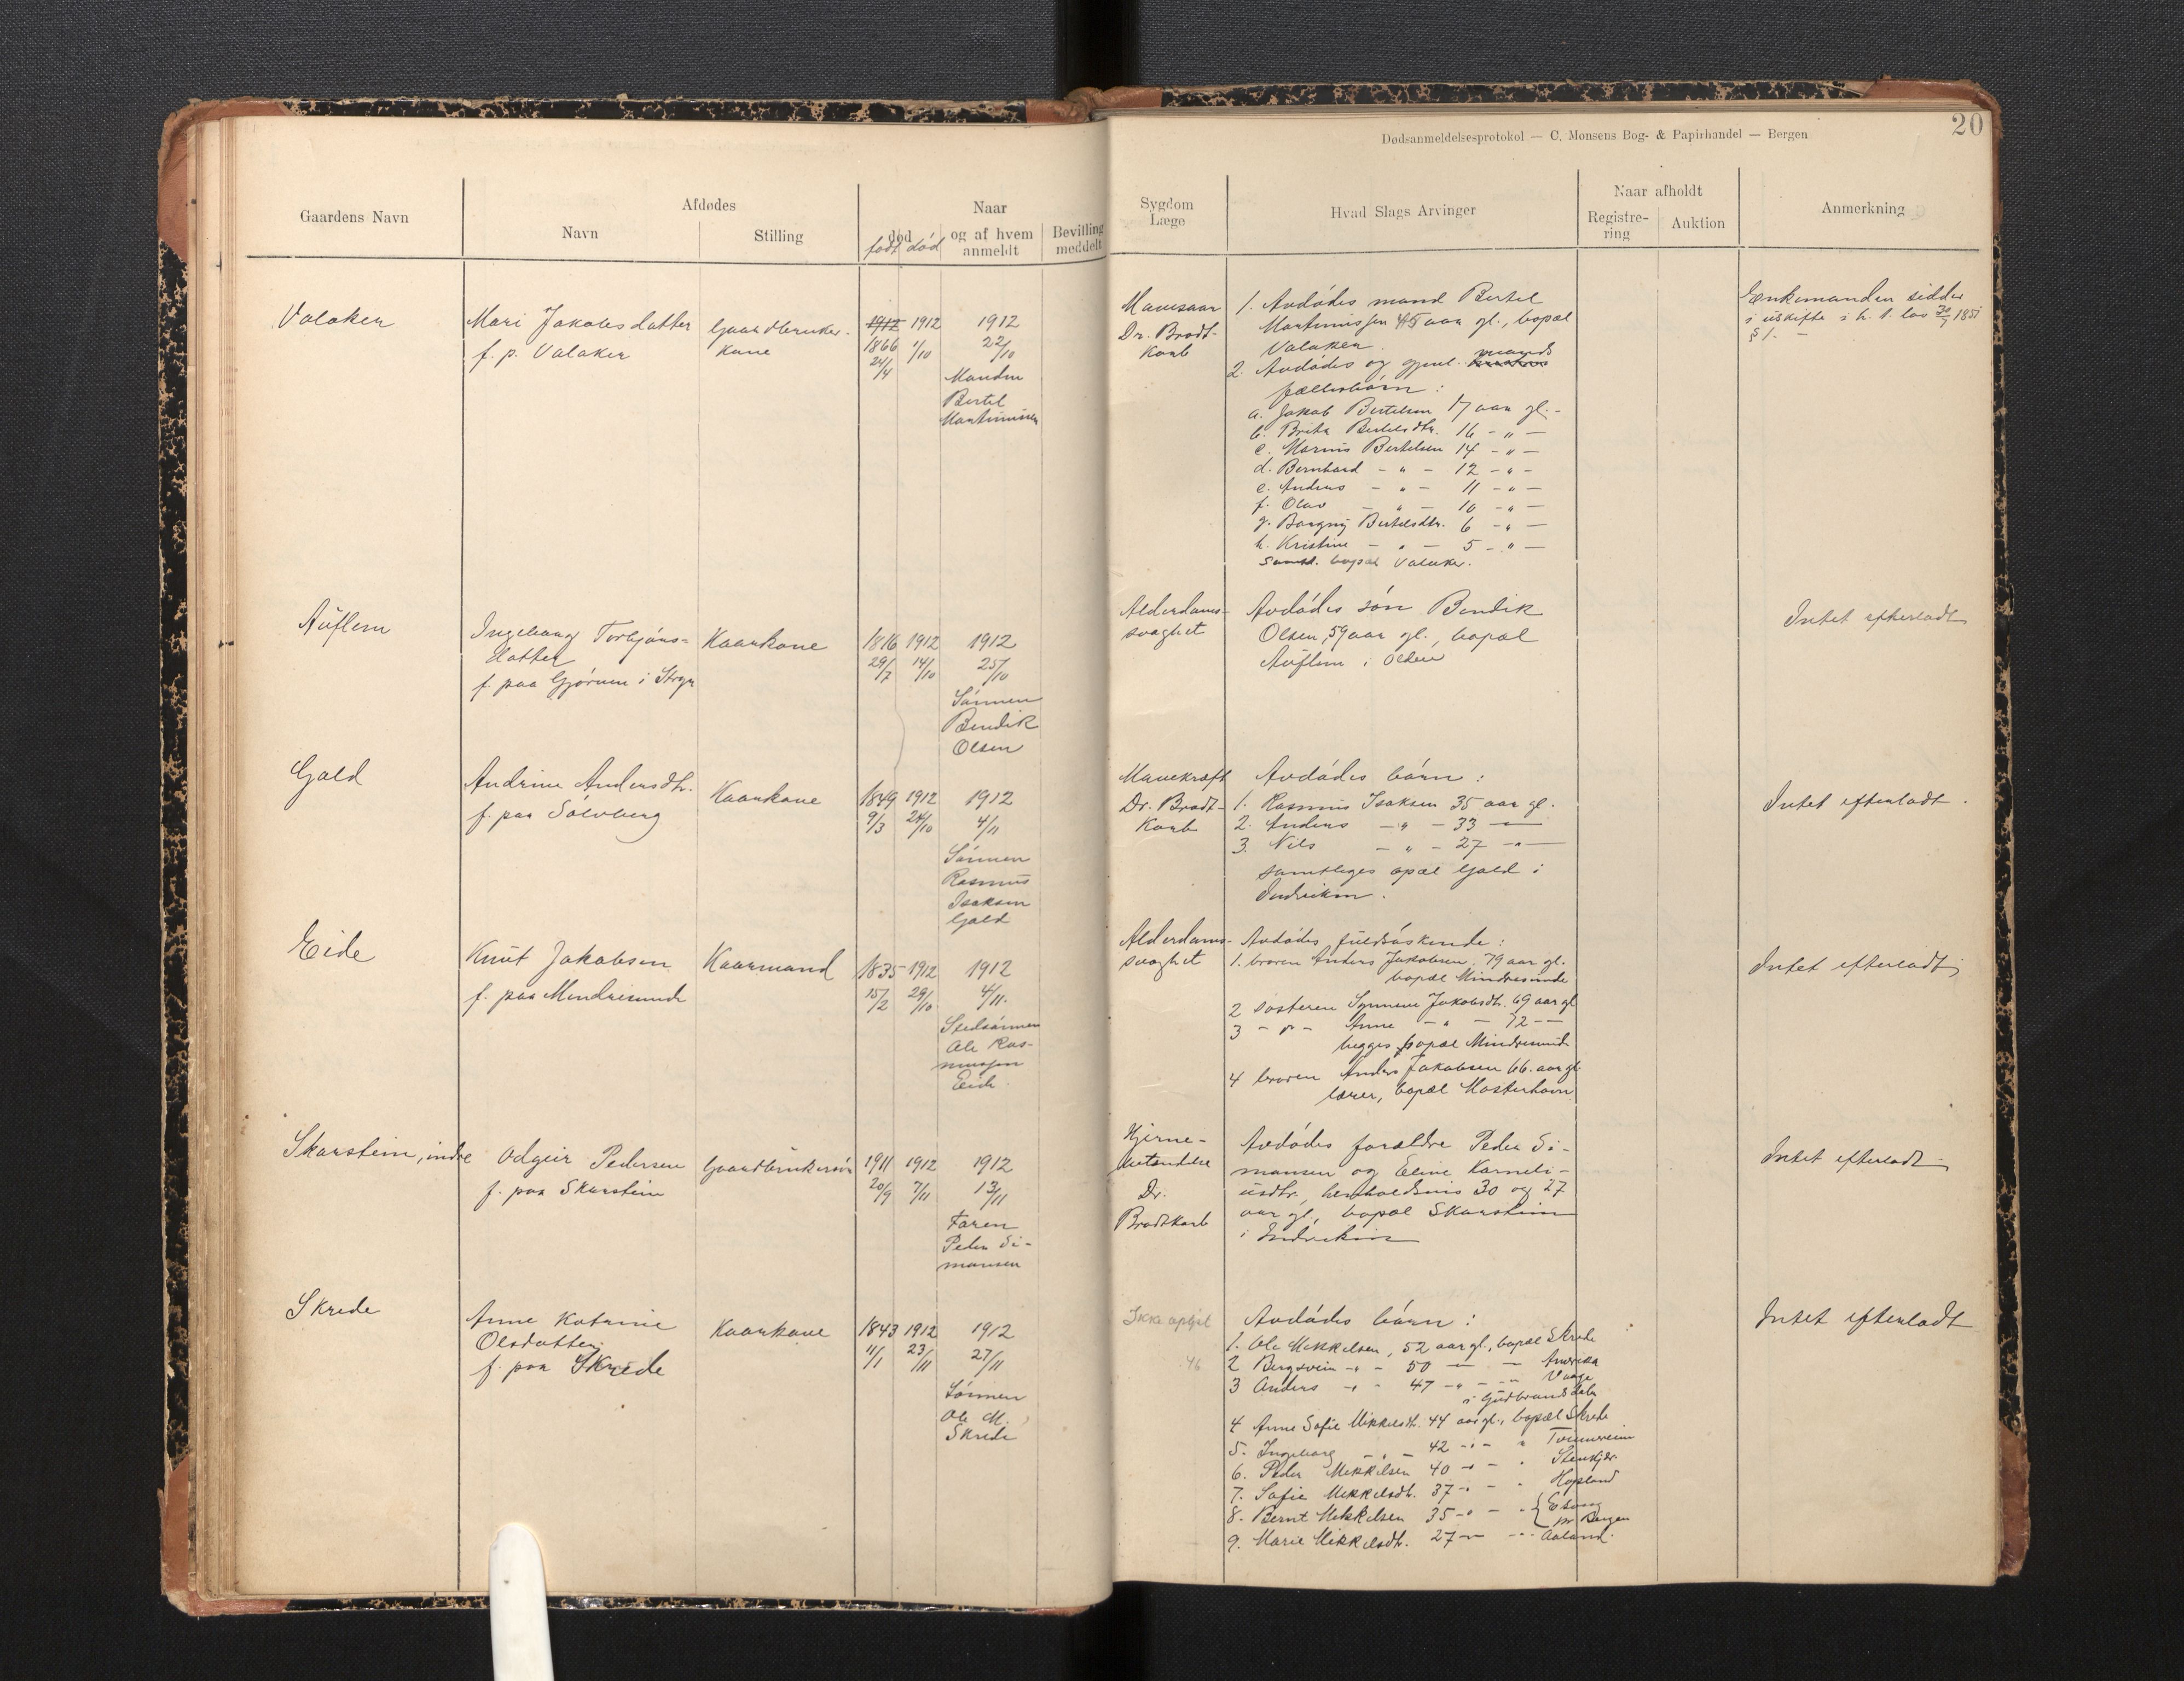 20
Dødsanmeldelsesprotokol — C. Monsens Bog- & Papirhandel — Bergen
Gaardens Navn
Afdødes
Navn
Stilling
Naar
død
født død
og af hvem
anmeldt
Bevilling
meddelt
Sygdom
Læge
Hvad Slags Arvinger
Naar afholdt
Registre-
ring
Auktion
Anmerkning
Valaker
Mari Jakobsdatter
f. p. Valaker
Gaardbruker-
kone
1912 1912
1866 1/10
24/4
1912
22/10
Manden
Bertel
Martinussen
Mavesaar
Dr. Brodt-
korb
1. Avdødes mand Bertel
Martinussen 45 aar gl., bopæl
Valaker
2. Avdødes og gjenl. mands
fællesbørn :
a. Jakob Bertelsen 17 aar gl. -
b. Brita Bertelsdtr. 16 - " -
c. Marius Bertelsen 14 - " -
d. Bernhard - " - 12 - " -
e. Anders - " - 11 - " -
f. Olav - " - 10 - " -
g. Borgny Bertelsdtr. 6 - " -
h. Kristine - " - 5 - " -
Samtl. bopæl Valaker.
Enkemanden sidder
i uskifte i h. t. lov 30/7 1851
§ 1. -
Auflem
Ingeborg Torbjøns=
datter
f. paa Gjørven i Stryn
Kaarkone
1816 1912
29/7 14/10
1912
25/10
Sønnen
Bendik
Olsen
Alderdoms-
svaghet
Avdødes søn Bendik
Olsen, 59 aar gl., bopæl
Auflem i Olden
Intet efterladt
Gald
Andrine Andersdtr.
f. paa Sølvberg
Kaarkone
1849 1912
9/3 24/10
1912
4/11
Sønnen
Rasmus
Isaksen
Gald
Mavekræft
Dr. Brodt-
korb
Avdødes børn :
1. Rasmus Isaksen 35 aar gl.
2. Anders - " - 33 -
3. Nils - " - 27 - " -
samtliges opæl Gald i
Indviken.
Intet efterladt.
Eide
Knut Jakobsen
f. paa Mindresunde
Kaarmand
1835 1912
15/2 29/10
1912
4/11.
Stedsønnen
Ole Ras-
mussen
Eide.
Alderdoms-
svaghet
Avdødes fuldsøskende :
1. broren Anders Jakobsen, 79 aar gl.
bopæl Mindresunde
2 søsteren Synneve Jakobsdtr. 69 aar gl
3 - " - Anne - " - 72 - -
begges bopæl Mindresunde
4 broren Anders Jakobsen 66. aar gl
lærer, bopæl Mosterhavn
Intet efterladt
Skarstein, indre
Odgeir Pedersen
f. paa Skarstein
Gaardbrukersøn
1911 1912
20/9 7/11
1912
13/11
Faren
Peder Si-
monsen
Hjerne-
betændelse
Dr.
Brodtkorb
Avdødes forældre Peder Si-
monsen og Eline Karneli-
usdtr., henholdsvis 30 og 27
aar gl., bopæl Skarstein
i Indviken
Intet efterladt
Skrede
Anne Katrine
Olsdatter
f. paa Skrede
Kaarkone
1843 1912
11/1 23/11
1912
27/11
Sønnen
Ole M.
Skrede
Ikke opgit
46
Avdødes børn :
1. Ole Mikkelsen, 52 aar gl., bopæl Skrede
2 Bergsvein - " - 50 - - Amerika
3 Anders - " - 47 - " - - Vaage
i Gudbrandsdalen
4 Anne Sofie Mikkelsdt. 44 aar gl., bopæl Skrede
5. Ingeborg - " - 42 - " - "
6. Peder Mikkelsen 40 - " - " Stenkjer
7. Sofie Mikkelsdt. 37 - " - " Hopland
8. Bernt Mikkelsen 35 - " - "
pr Bergen
9. Marie Mikkelsdt. 27 - - " Aaland.
Intet efterladt